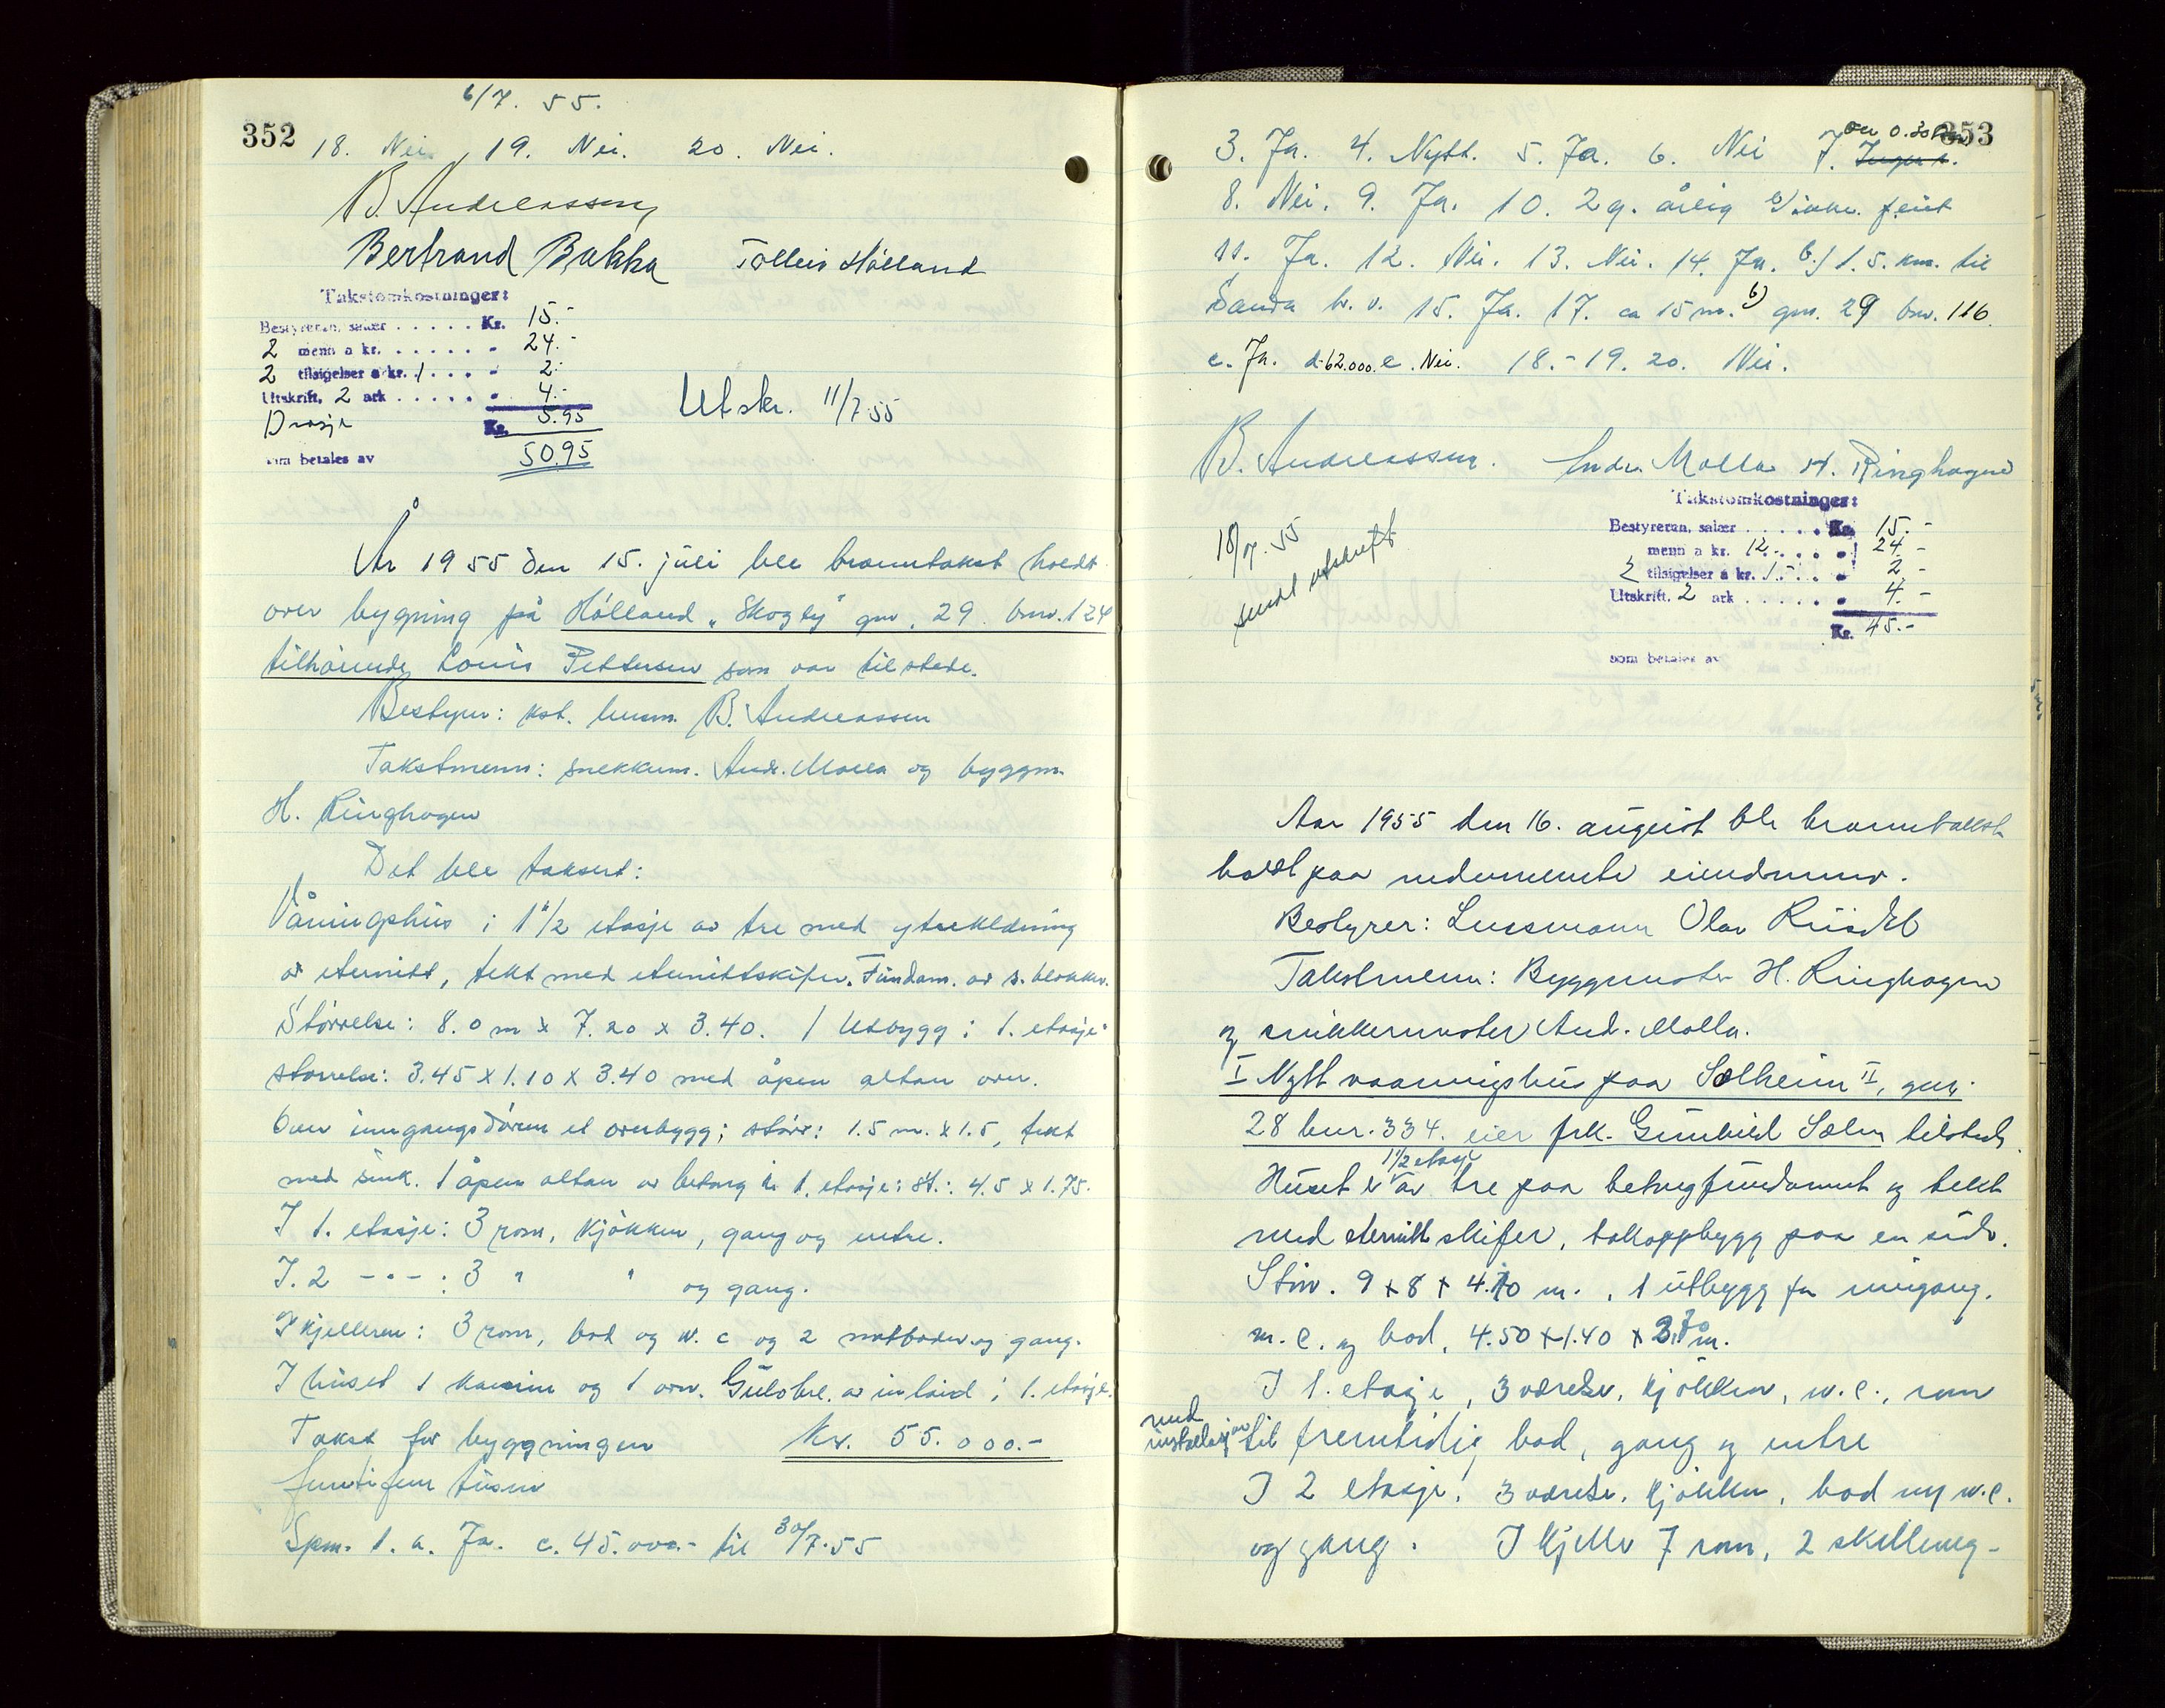 6/7. 55.
352
18. Nei. 19. Nei. 20. Nei.
B. Andreassen
Bertrand Bakka Tolleiv Hålland
Takstomkostninger:
Bestyreren, salær ..... Kr. 15.-
2 menn a kr. ...... - 24.-
2 tilsigelser a kr. 1 ... - 2.-
Utskrift, 2 ark ...... - 4.-
Drosje 5.95
Kr. 50.95
som betales av
Utskr. 11/7 55
År 1955 den 15. juli ble branntakst holdt
over bygning på Hålland "Skogly" gnr. 29 bnr. 124
tilhørende Louis Pettersen som var tilstede.
Bestyrer: kst. lensm. B. Andreassen
Takstmenn: snekkerm. Andr. Molla og byggm.
H. Ringhagen
Det ble taksert:
Våningshus i 1 1/2 etasje av tre med ytrekledning
av eternitt, tekt med eternittskifer. Fundam. av s. blokker.
Størrelse: 8.0 m x 7.20 x 3.40. 1 Utbygg i 1. etasje
størrelse: 3.45 x 1.10 x 3.40 med åpen altan over.
Over inngangsdøren et overbygg; størr: 1.5 m. x 1.5, tekt
med sink. 1 åpen altan av betong i 1. etasje: st.: 4.5 x 1.75.
I 1. etasje: 3 rom, kjøkken, gang og entre.
I. 2 - " - : 3 " " og gang.
I kjelleren: 3 rom, bad og w. c og 2 matboder og gang.
I huset 1 kamin og 1 ovn. Gulvbel. av inlaid i 1. etasje.
Takst for byggningen kr. 55.000.-
femtifem tusen
Spm. 1. a. Ja. c. 45.000.- til 30/7.55
353
3. Ja. 4. Nytt. 5. Ja. 6. Nei 7. Ingen. over 0.30
8. Nei. 9. Ja. 10. 2 g. årlig feiet
11. Ja. 12. Nei. 13. Nei. 14. Ja. b) 1.5. km. til
Sanda br. v. 15. Ja. 17. ca 15 m. b) gnr. 29 bnr. 116.
c. Ja. d. 62.000. e. Nei. 18.- 19. 20. Nei.
B. Andreassen. Andr. Molla H. Ringhagen
18/7. 55
sendt utskrift
Takstomkostninger:
Bestyreren, salær ..... Kr. 15.-
menn a kr. 12.- ... - 24.-
2 tilsigelser a kr. 1.- .. - 2.-
Utskrift. 2 ark ..... - 4.-
Kr. 45.-
som betales av
Aar 1955 den 16. august ble branntakst
holdt paa nedennevnte eiendommer.
Bestyrer: Lensmann Olav Riisdal
Takstmenn: Byggmester H. Ringhagen
og snikkermester And. Molla.
I Nytt vaaningshus paa Solheim II, gnr.
28 bnr. 334. eier frk. Gunhild Sælen tilstede.
Huset er 1 1/2 etasje av tre paa betongfundament og tekt
med eternittskifer, takoppbygg paa en side.
Stør. 9 x 8 x 4.70 m., 1 utbygg for inngang.
w. c. og bod, 4.50 x 1.40 x 3.70 m.
I 1. etasje, 3 værelser, kjøkken, w. c., rom
med installasjon til fremtidig bad, gang og entre
I 2 etasje: 3 værelser, kjøkken, bad og w.c.
og gang. I Kjeller 7 rom, 2 skilleveg-